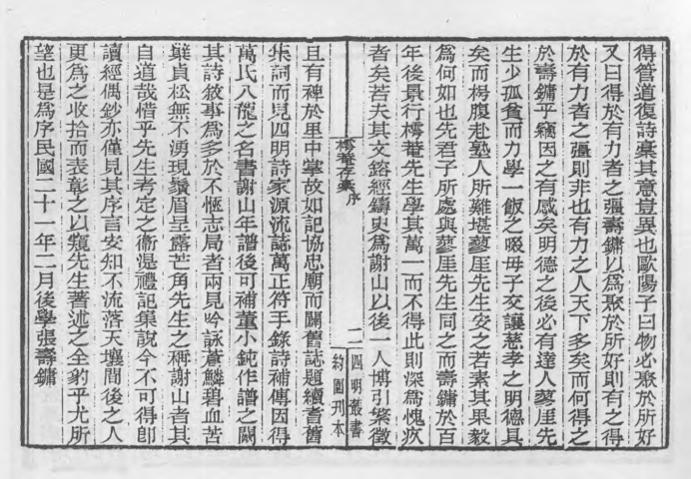 得管道復詩稾其意豈異也歐陽子曰物必聚於所好
又曰得於有力者之彊壽鏞以爲聚於所好則有之得
於有力者之彊則非也有力之人天下多矣而何得之
於壽鏞乎竊因之有感矣明德之後必有達人蓼厓先
生少孤貧而力學一飯之啜母子交讓慈孝之明德具
矣而枵腹赴塾人所難堪蓼厓先生安之若素其果毅
爲何如也先君子所處與蓼厓先生同之而壽鏞於百
年後景行樗菴先生學其萬一而不得此則深爲愧疚
者矣若夫其文鎔經鑄史爲謝山以後一人博引繁徵
樗菴存稾序
二
四明叢書
約園刊本
且有裨於里中掌故如記協忠廟而闢舊誌題續耆舊
集詞而見四明詩家源流誌萬正符手錄詩補傳因得
萬氏八龍之名書謝山年譜後可補董小鈍作譜之闕
其詩敘事爲多於不愜志局者兩見吟詠蒼鱗碧血苦
櫱貞松無不湧現鬚眉呈露芒角先生之稱謝山者其
自道哉惜乎先生考定之衞湜禮記集說今不可得卽
讀經偶鈔亦僅見其序言安知不流落天壤間後之人
更爲之收拾而表彰之以窺先生著述之全豹乎尤所
望也是爲序民國二十一年二月後學張壽鏞